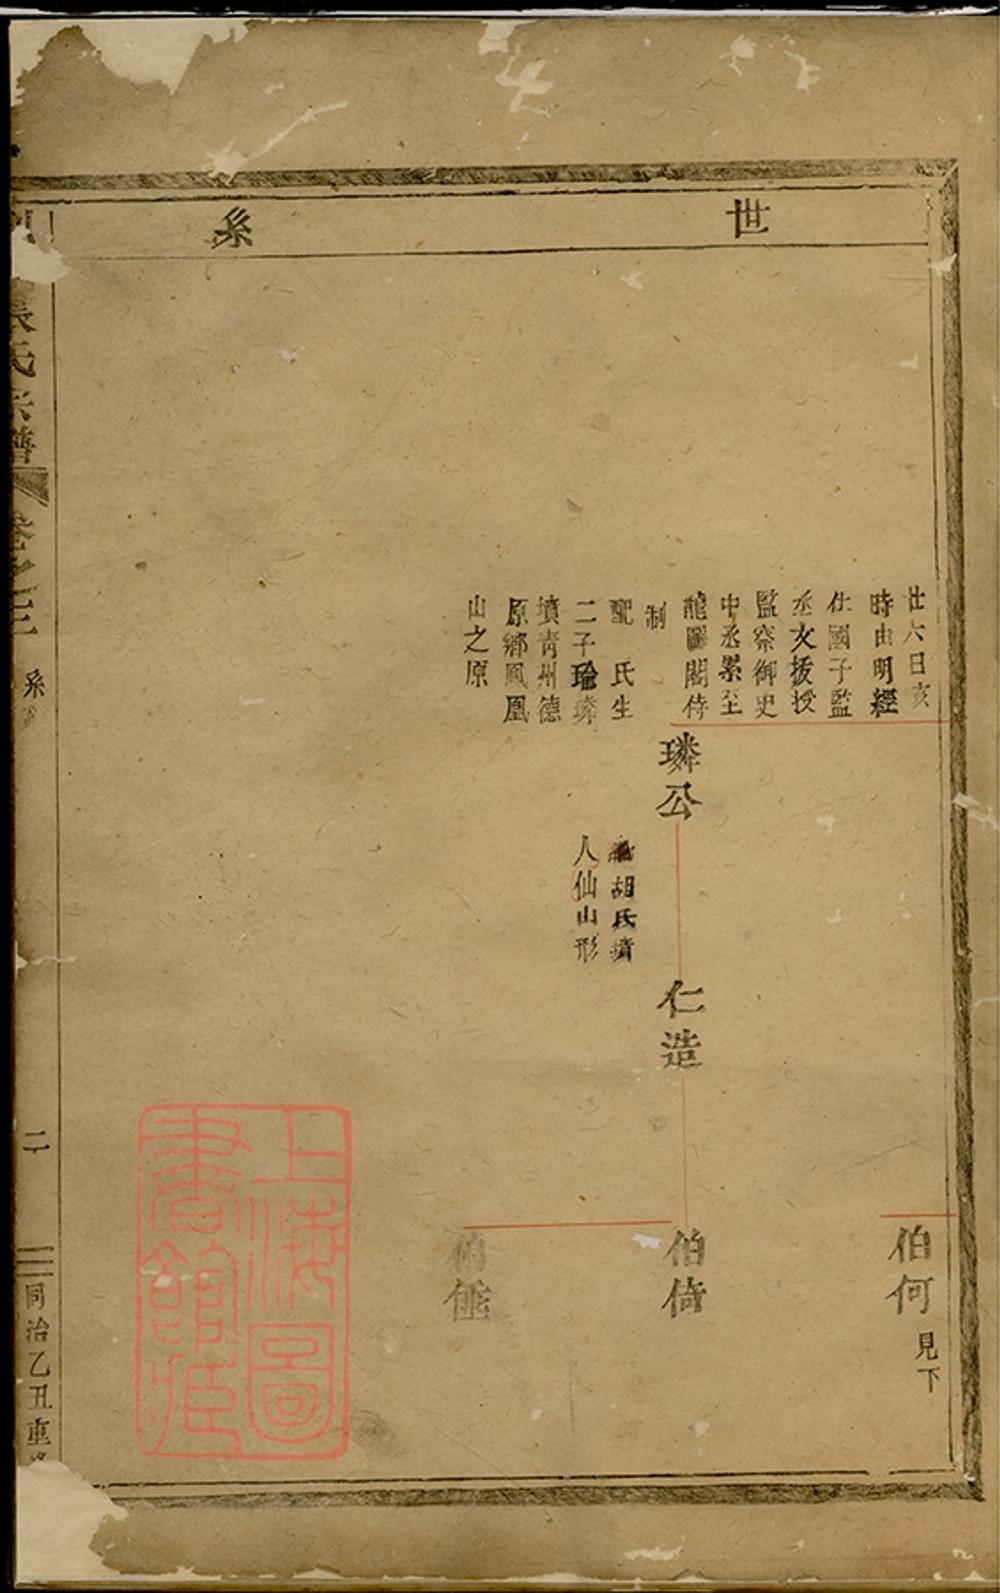 世系
廿六日亥
時由明經
仕國子監
丞文援授
監察御史
中丞累至
龍圖閣侍
制
配　氏生
二子瑜璘
墳青州德
原鄉鳳凰
山之原
璘公
胡氏墳
人仙山形
仁造
伯何
見下
伯倚
伯
張氏宗譜
卷之三
系
二
同治乙丑重修
上海圖
書館藏